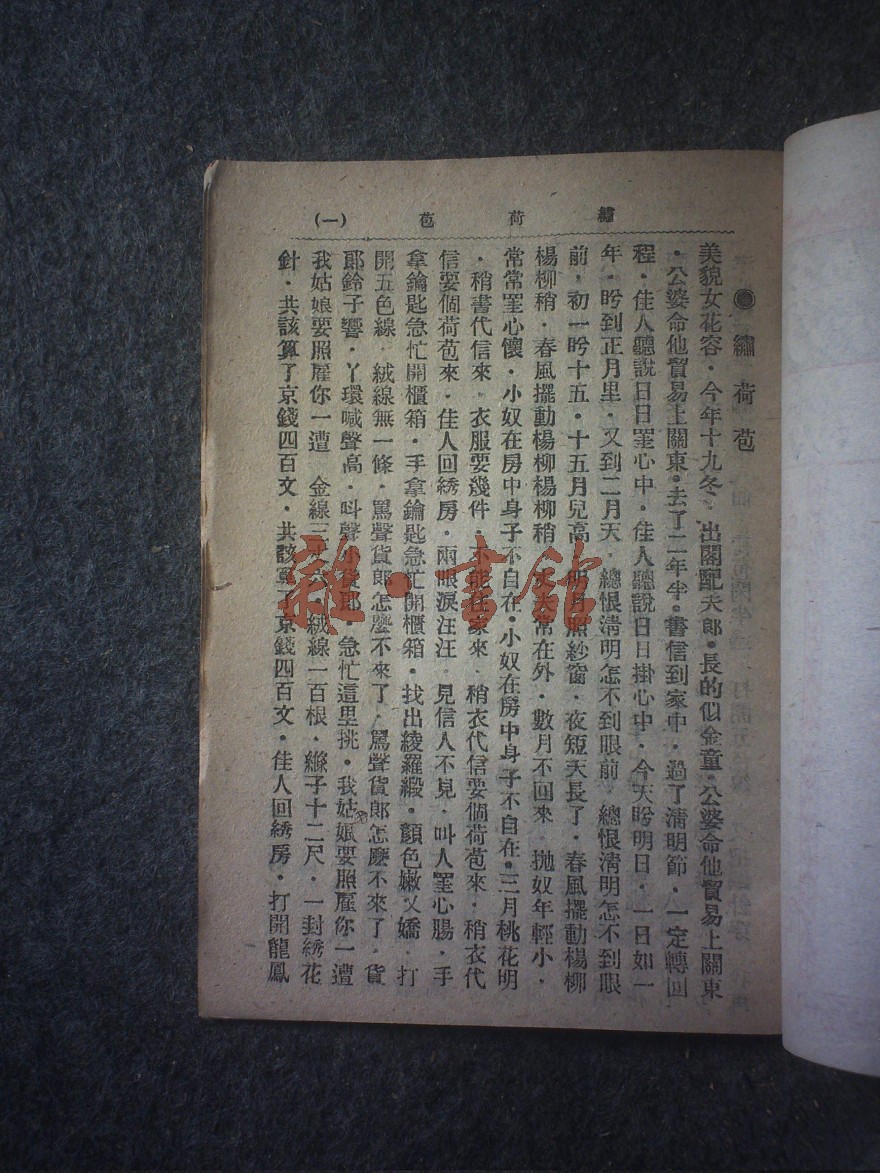 繡荷苞 (一)
繡荷苞
美貌女花容·今年十九冬·出閣配夫郎·長的似金童·公婆命他貿易上關東
·公婆命他貿易上關東·去了二年半·書信到家中·過了清明節·一定轉回
程·佳人聽說日日罣心中·佳人聽說日日掛心中·今天盻明日·一日如一
年·盻到正月里·又到二月天·總恨淸明怎不到眼前·總恨淸明怎不到眼
前·初一盻十五·十五月兒高·明月照紗窗·夜短天長了·春風擺動楊柳
楊柳稍·春風擺動楊柳楊柳稍·丈夫常在外·數月不回來·拋奴年輕小·
常常罣心懷·小奴在房中身子不自在·小奴在房中身子不自在·三月桃花明
·稍書代信來·衣服要幾件·不能往家來·稍衣代信要個荷苞來·稍衣代
信要個荷苞來·佳人回綉房·兩眼淚汪汪·見信人不見·叫人罣心腸·手
拿鑰匙急忙開櫃箱·手拿鑰匙急忙開櫃箱·找出綾羅緞·顏色嫩又嬌·打
開五色線·絨線無一條·罵聲貨郎怎麼不來了·罵聲貨郎怎麼不來了·貨
郎鈴子響·丫環喊聲高·呌聲外貨郎·急忙這里挑·我姑娘要照雇你一遭
我姑娘要照雇你一遭 金線三 絨線一百根·縧子十二尺·一封綉花
針·共該算了京錢四百文·共該算了京錢四百文·佳人回綉房·打開龍鳳
雜·書館